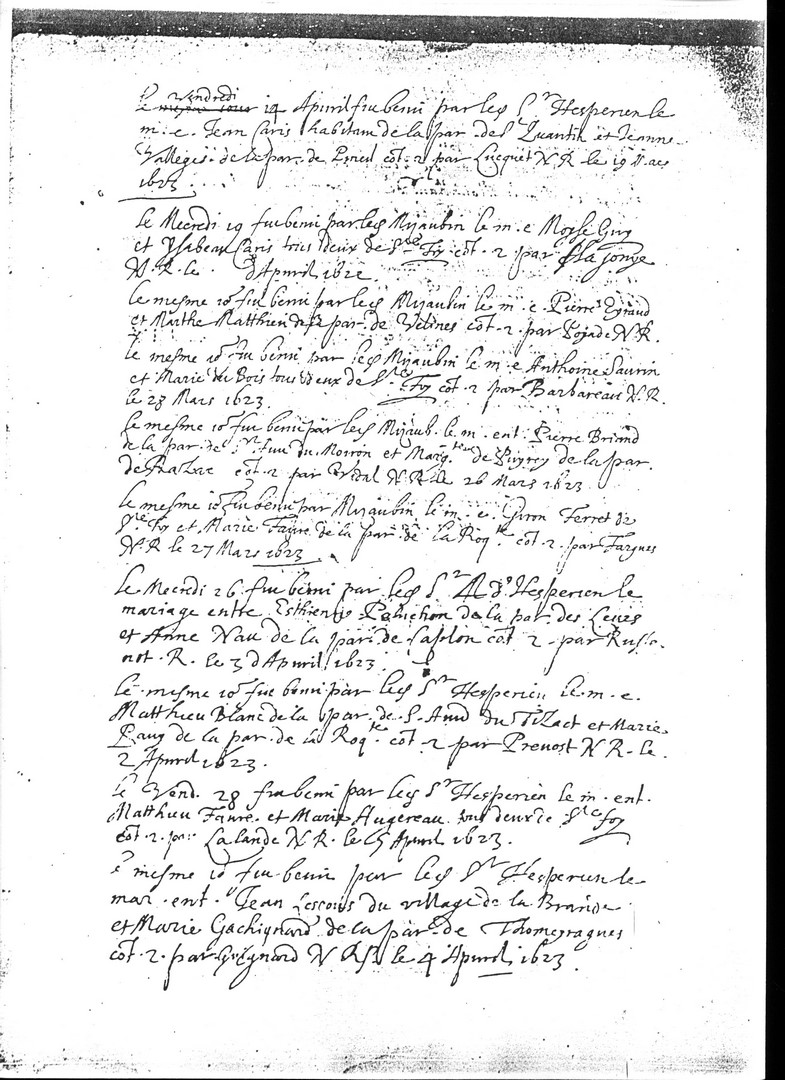 vendredi
Le 14 Apvril fut beni par led Sr Hesperien le
m. e. Jean Caris habitant de la par. de St Quantin et Jeanne
Valleges de la par. de cot. 2 par Lucquet N R. le 19
1623
Le Mecredi 19 fut beni par led Mijaubin le m. e Moyse Guy
et Ysabeau Caris tous deux de Ste Foy cot. 2 par
N. R. le . d'Apvril 1622
Le mesme io. fut beni par led Mijaubin le m. e. Pierre
et Marthe Matthieu de la par. de Velines cot. 2. par N R.
Le mesme io. fut beni par led Mijaubin le m. e Anthoine Saurin
et Marie du Bois tous deux de Ste Foy cot. 2 par Barbareau N. R.
le 28 Mars 1623
Le mesme io. fut beni par led Mijaub. le m. ent. Pierre
de la par. de du Moiron et Marg.te de Puyrey de la par.
de cot. 2 par Vidal N R le 26 Mars 1623
Le mesme io. fut beni par Mijaubin le m. e. Giron Ferret de
Ste Foy et Marie Faure de la par. de la Roq.te cot. 2. par Fargues
N. R le 27 Mars 1623
Le Mecredi 26 fut beni par led Sr Hesperien le
mariage entre Esthienne de la par. des Leves
et Anne Nau de la par. de cot. 2 par
not. R. le 3 d'Apvril 1623
Le mesme io. fut beni par led Sr Hesperien le. m. e.
Matthieu Blanc de la par. de S. du et Marie
de la par. de la Roq.te cot. 2 par Prevost N R. le.
2 Apvril 1623.
Le Vend. 28 fut beni par led Sr Hesperien le m. ent.
Matthieu Faure. et Marie Hugereau. tous deux de Ste Foy
cot. 2. par Lalande N R. le 15 Apvril 1623.
Le mesme io fut beni par led Sr Hesperien le
mar. ent. Jean Lescours du village de la Brande
et Marie Gachignard de la par. de Thomeyragues
cot. 2. par Guignard N R. le 4 Apvril 1623.